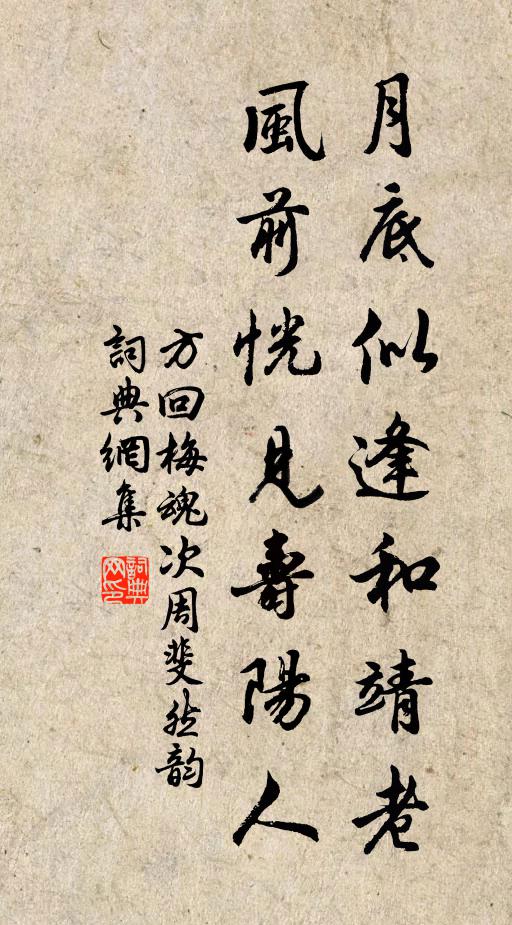 月底似逢和靖老
風前恍見壽陽人
方回梅魂次周斐然韵
詞典網集
詞典網印